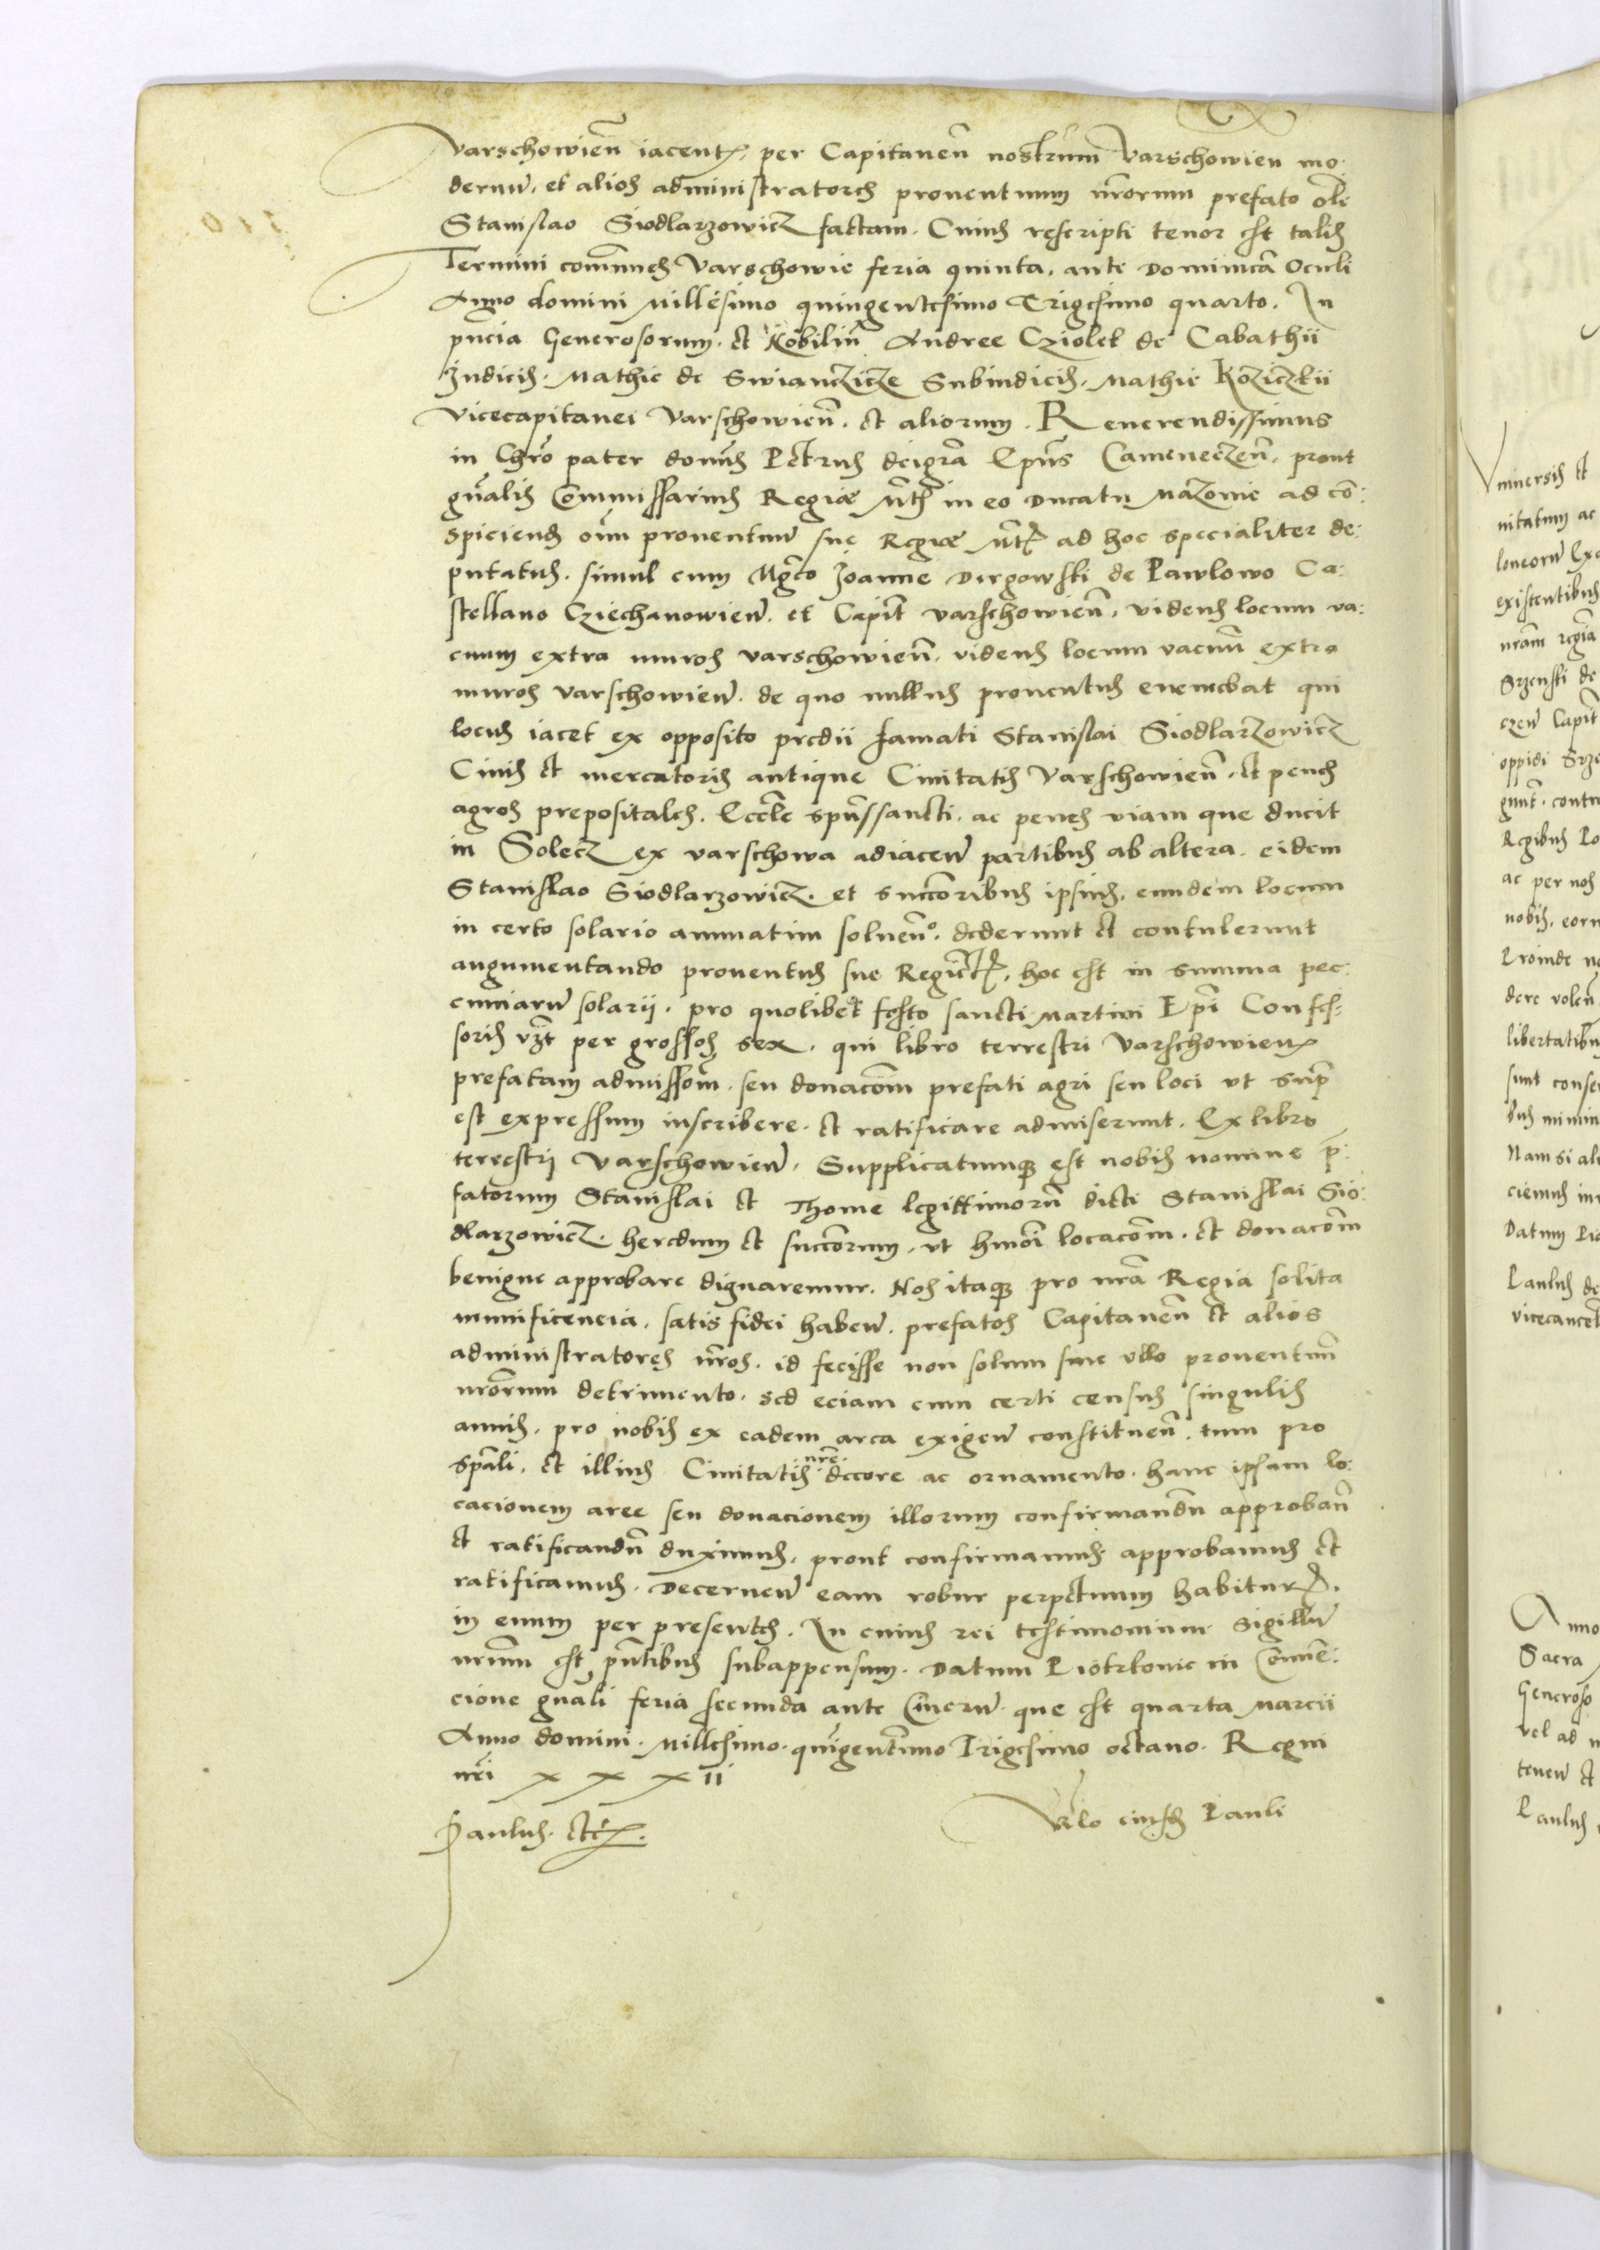 Varschowieñ iacent per Capitaneũ nostrum Varschowieñ mo
dernũ, et alios administratores proventuum nr̃orum prefato olĩ
Stanislao Siodlarzowicz factam. Cuius rescripti tenor est talis
Termini com̃unes Varschowie feria quinta, ante Dominicã Oculi
Anno domini Millesimo quingentesimo Trigesimo quarto. In
pñcia Generosorum et Nobiliũ Andree Cziolek de Cabathii
Judicis. Mathie de Swianczicze Subiudicis, Mathie Koziczkii
Vicecapitanei Varschowieñ. et aliorum. Reverendissimus
in Chrõ pater domũs Petrus deigrã Ep̃us Cameneczeñ, prout
gñalis Commissarius Regiæ Mt̃is in eo Ducatu Mazovie ad cõ:
spiciend̃ oĩm proventuũ sue Regiæ Mt̃is ad hoc specialiter de:
putatus. simul cum Mgc̃o Joanne Dirgowski de Pawlowo Ca:
stellano Cziechanowieñ. et Capit̃ Varschowieñ, videns locum va:
cuum extra muros Varschowieñ. videns locum vacuũ extra
muros Varschowieñ. de quo nullus proventus eveniebat qui
locus iacet ex opposito predii famati Stanislai Siodlarzowicz
Civis et mercatoris antique Civitatis Varschowieñ, et penes
agros prepositales, Eccl̃e sp̃ussancti, ac penes viam que ducit
in Solecz ex Varschowa adiaceñ partibus ab altera. eidem
Stanislao Siodlarzowicz. et succ̃oribus ipsius, eundem locum
in certo solario annuatim solveñº. dederunt et contulerunt
augumentando proventus sue Regiẽ Mt̃is, hoc est in summa pec:
cuniarũ solarii, pro quolibet festo sancti Martini Ep̃i Confes:
soris vz̃t per grossos sex, qui libro terrestri Varschowieñ
prefatam admissõm, seu donacõm prefati agri seu loci ut sup̃
est expressum inscribere. et ratificare admiserunt. Ex libro
terrestri Varschowieñ. Supplicatumq̃ est nobis nomine p̃:
fatorum Stanislai et Thome legittimorũ dicti Stanislai Sio:
dlarzowicz, heredum et succ̃orum, ut hmõi locacõm. et donacõm
benigne approbare dignaremur. Nos itaq̃ pro nrã Regia solita
munificencia. satis fidei habeñ. prefatos Capitaneũ et alios
administratores nr̃os. id fecisse non solum sine ullo proventuũ
nrõrum detrimento. sed eciam cum certi census singulis
annis. pro nobis ex eadem area exigeñ constitueñ. tum pro
sp̃ali. et illius Civitatis nr̃e decore ac ornamento. hanc ipsam lo:
cacionem aree seu donacionem illorum confirmandũ approbañ
et ratificandũ duximus. prout confirmamus approbamus et
ratificamus. Decerneñ eam robur perpetuum habitur̃.
in evum per presentes. In cuius rei testimonium Sigillũ
nrũm est pñtibus subappensum. Datum Piotrkovie in Cõnve:
cione gñali feria secunda ante Cinerũ. que est quarta Marcii
Anno domini. Millesimo. quĩgentesimo Trigesimo octavo. Regni
nr̃i XXXII
Paulus. etc.
Rlo eiusd̃ Pauli
Universis et
nitatum ac
existentibus
nrãm regiã
Srzenski de
czeñ Capit̃
oppidi Srze
gunt̃. contu
Regibus Po
ac per nos
nobis, eoru
Proinde no
dere voleñ
libertatibu
sunt conse
Nam si ali
ciemus in
Datum Pio
Paulus de
vicecancel
Anno
Sacra
Generoso
vel ad n
teneñ et
Paulus